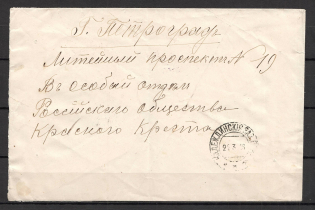 г. Петроградъ
Литейный проспектъ № 19
Въ Особый отдѣл
Россійскаго общества
Краснаго Креста